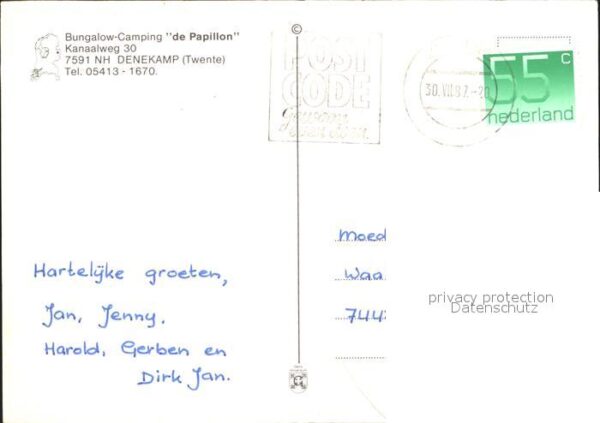 Bungalow-Camping "de Papillon"
Kanaalweg 30
7591 NH DENEKAMP (Twente)
Tel. 05413 - 1670.
©
POST
CODE
gewoon
even doen.
30.VII.87.-20
55 c
nederland
Hartelijke groeten,
Jan, Jenny.
Harold, Gerben en
Dirk Jan.
Moed
Waa
744
privacy protection
Datenschutz